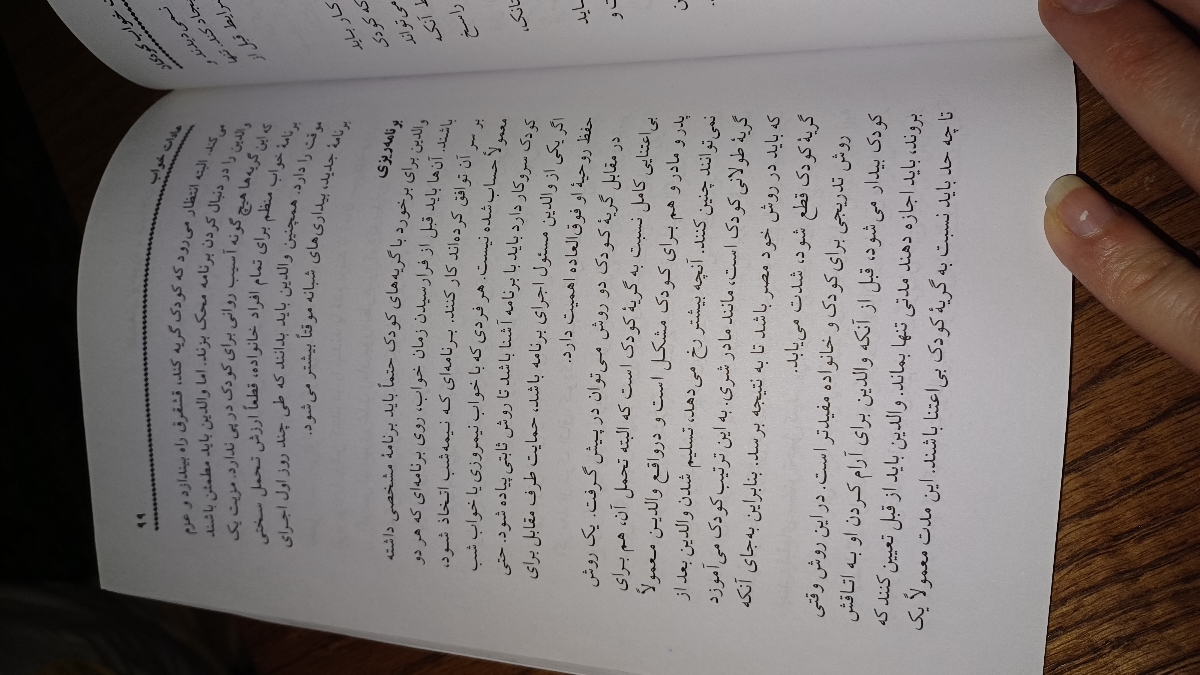 عادات خواب ۹۹
می کند. البته انتظار می رود که کودک گریه کند، قشقرق راه بیندازد و عزم
والدین را در دنبال کردن برنامه محک بزند. اما والدین باید مطمئن باشند
که این گریه‌ها هیچ گونه آسیب روانی برای کودک در پی ندارد. مزیت یک
برنامهٔ خواب منظم برای تمام افراد خانواده، قطعاً ارزش تحمل سختی
موقت را دارد. همچنین والدین باید بدانند که طی چند روز اول اجرای
برنامهٔ جدید، بیداری‌های شبانه موقتاً بیشتر می شود.
برنامه‌ریزی
والدین برای برخورد با گریه‌های کودک حتماً باید برنامهٔ مشخصی داشته
باشند. آن‌ها باید قبل از فرا رسیدن زمان خواب، روی برنامه‌ای که هر دو
بر سر آن توافق کرده‌اند کار کنند. برنامه‌ای که نیمه‌شب اتخاذ شود،
معمولاً حساب‌شده نیست. هر فردی که با خواب نیمروزی یا خواب شب
کودک سروکار دارد باید با برنامه آشنا باشد تا روش ثابتی پیاده شود. حتی
اگر یکی از والدین مسئول اجرای برنامه باشد، حمایت طرف مقابل برای
حفظ روحیهٔ او فوق‌العاده اهمیت دارد.
در مقابل گریهٔ کودک دو روش می‌توان در پیش گرفت. یک روش
بی‌اعتنایی کامل نسبت به گریهٔ کودک است که البته تحمل آن، هم برای
پدر و مادر و هم برای کودک مشکل است و درواقع والدین معمولاً
نمی‌توانند چنین کنند. آنچه بیشتر رخ می‌دهد، تسلیم شدن والدین بعد از
گریهٔ طولانی کودک است، مانند مادر شری. به این ترتیب کودک می‌آموزد
که باید در روش خود مصر باشد تا به نتیجه برسد. بنابراین به‌جای آنکه
گریهٔ کودک قطع شود، شدت می‌یابد.
روش تدریجی برای کودک و خانواده مفیدتر است. در این روش وقتی
کودک بیدار می‌شود، قبل از آنکه والدین برای آرام کردن او به اتاقش
بروند، باید اجازه دهند مدتی تنها بماند. والدین باید از قبل تعیین کنند که
تا چه حد باید نسبت به گریهٔ کودک بی‌اعتنا باشند. این مدت معمولاً یک